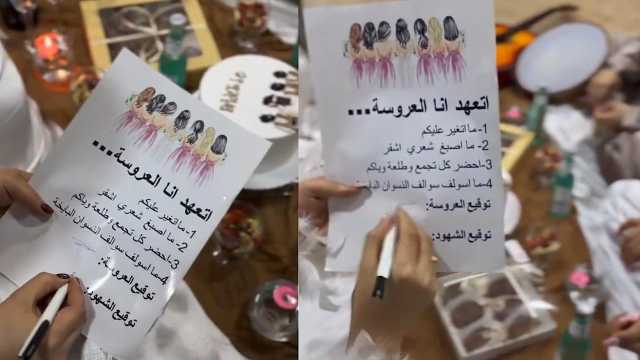 اتعهد انا العروسة...
1- ماتغير عليكم
2- ما اصبغ شعري اشقر
3-احضر كل تجمع وطلعة وياكم
4-ما اسولف سوالف النسوان البايخة
توقيع العروسة:
توقيع الشهود:
اتعهد انا العروسة...
1- مااتغير عليكم
2- ما اصبغ شعري اشقر
3-احضر كل تجمع وطلعة وياكم
4-ما اسولف سوالف النسوان البايخة
توقيع العروسة:
توقيع الشهود: